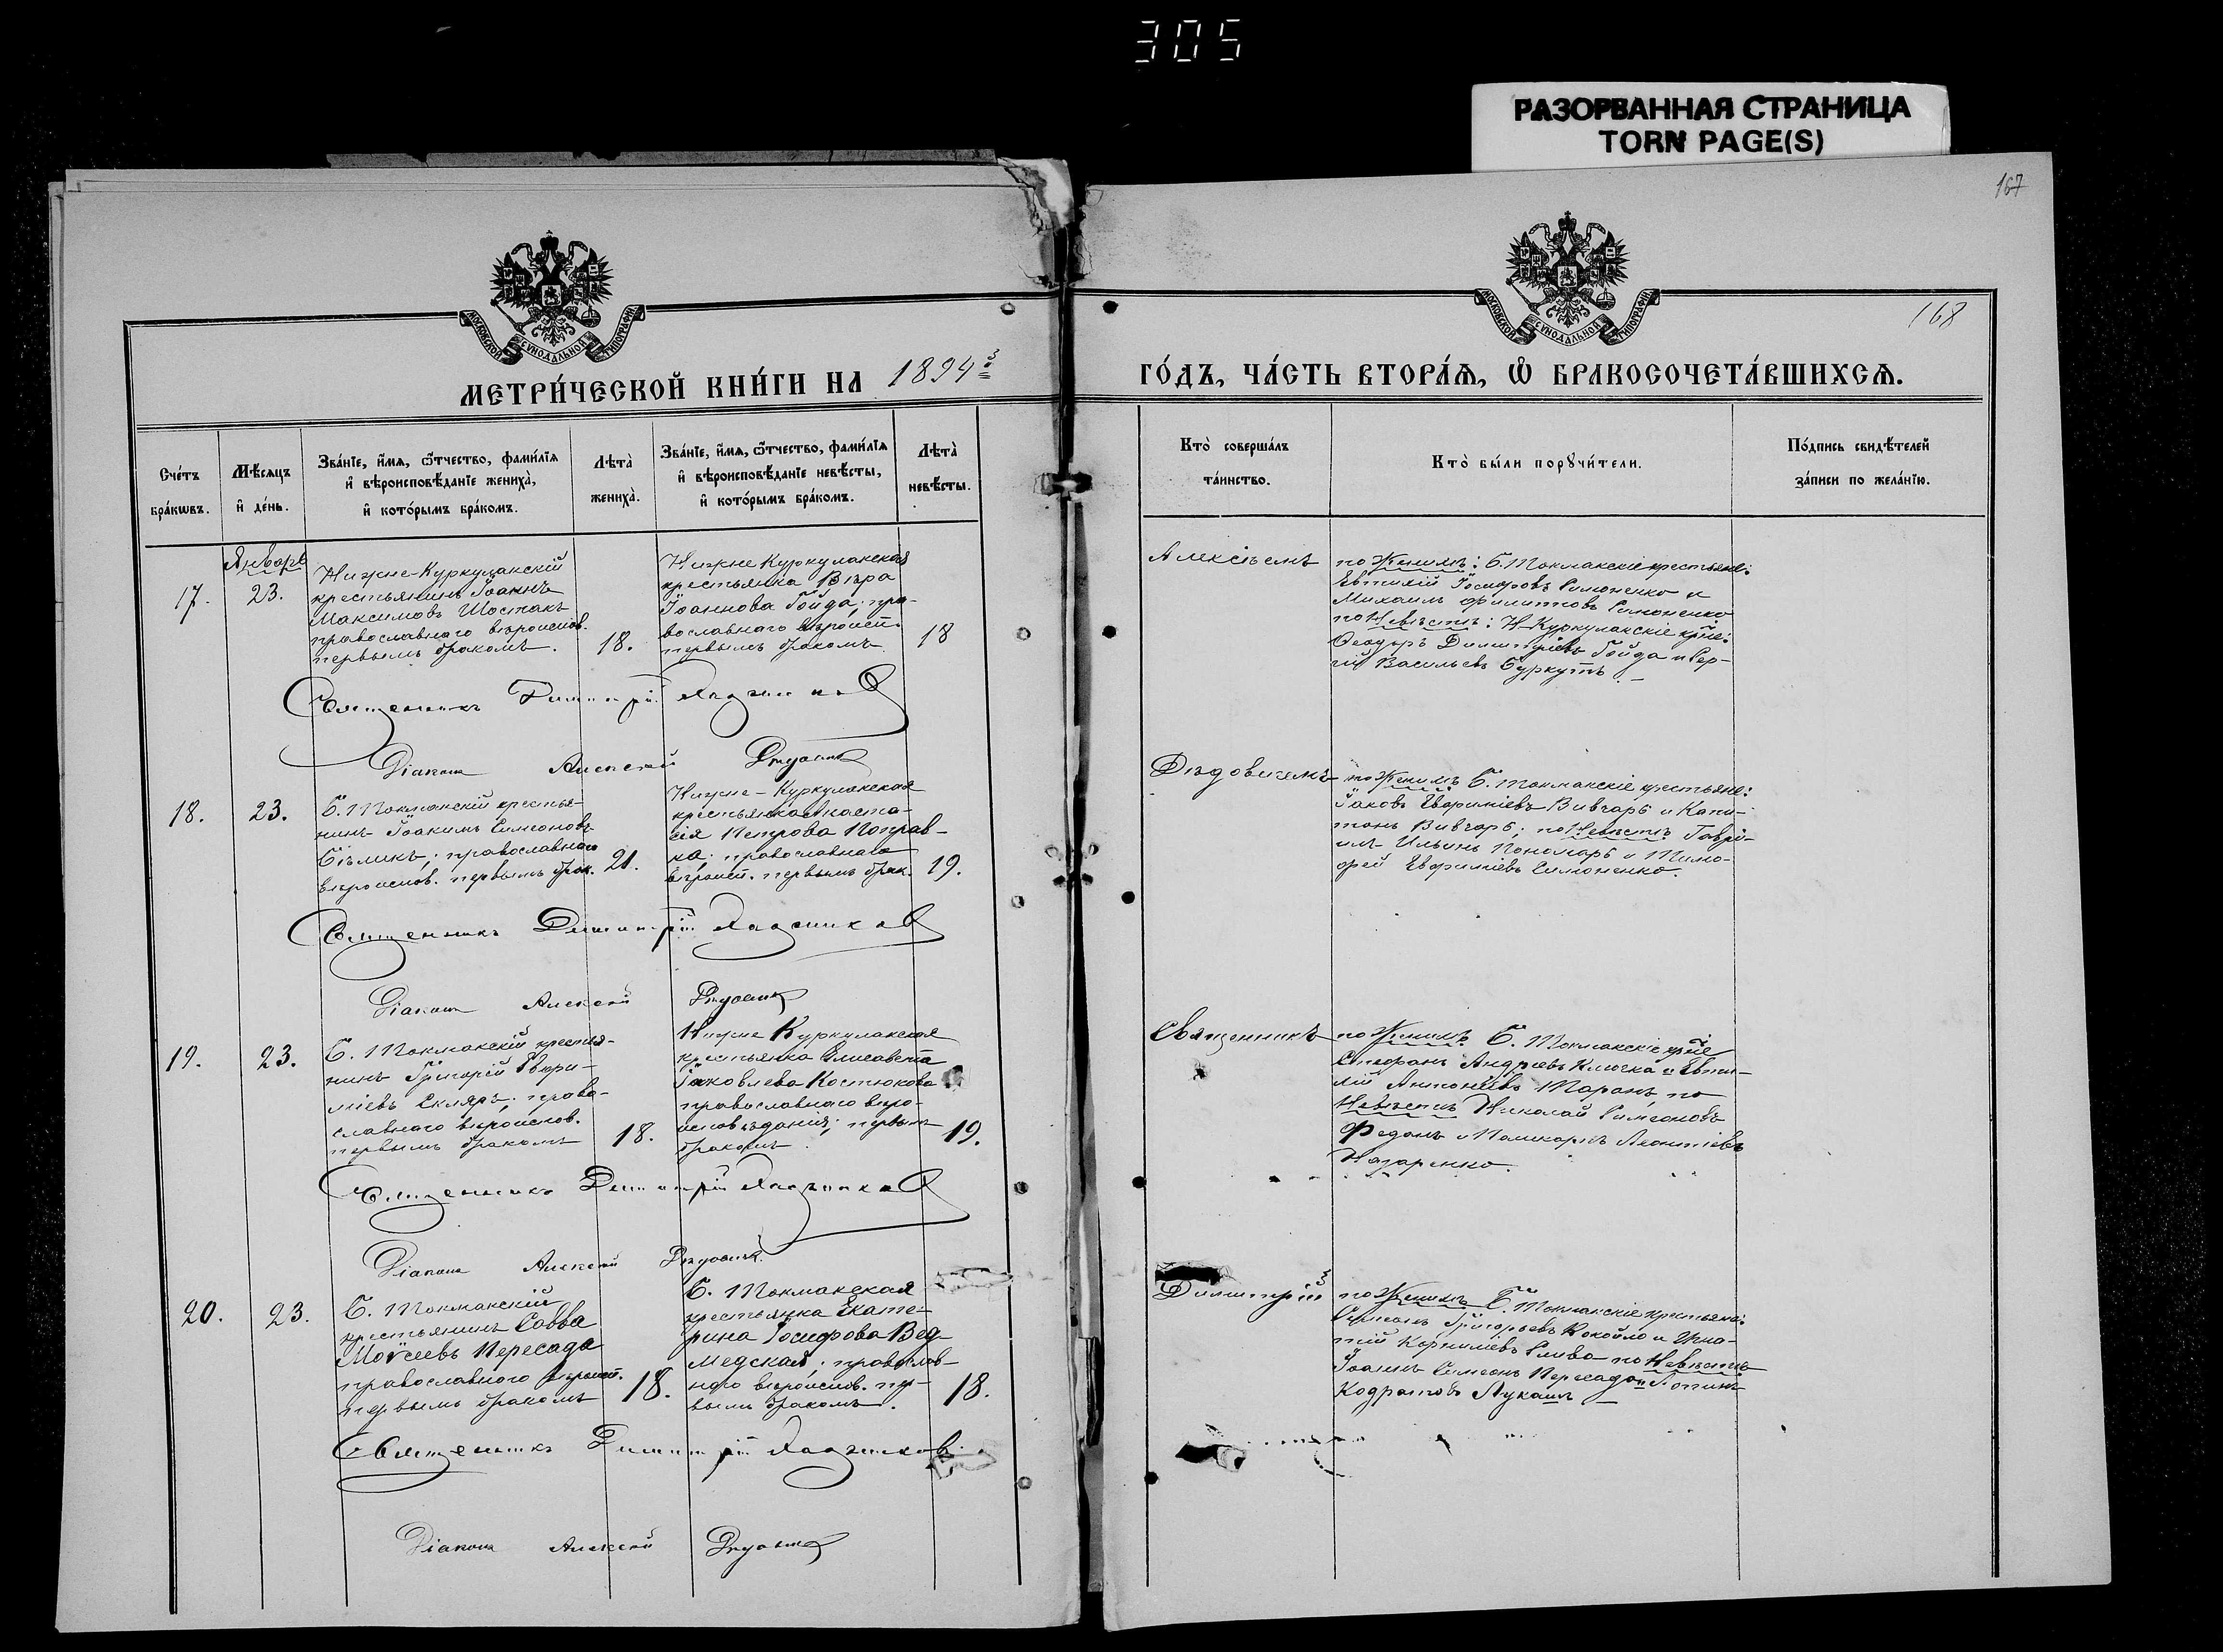 305
РАЗОРВАННАЯ СТРАНИЦА
TORN PAGE(S)
167
168
МОСКОВСКОЙ СѴНОДАЛЬНОЙ ТИПОГРАФІИ
МОСКОВСКОЙ СѴНОДАЛЬНОЙ ТИПОГРАФІИ
МЕТРИ́ЧЕСКОЙ КНИ́ГИ НА 1894й
ГО́ДЪ, ЧА́СТЬ ВТОРА́Ѧ, Ѽ БРАКОСОЧЕТА́ВШИХСѦ.
Сче́тъ бра́кѡвъ.
Мѣ́сѧцъ и҆ де́нь.
Зва́нїе, и҆́мѧ, ѻ҆́тчество, фами́лїѧ
и҆ вѣроисповѣ́данїе жениха̀,
и҆ кото́рымъ бра́комъ.
Лѣта̀ жениха̀.
Зва́нїе, и҆́мѧ, ѻ҆́тчество, фами́лїѧ
и҆ вѣроисповѣ́данїе невѣ́сты,
и҆ кото́рымъ бра́комъ.
Лѣта̀ невѣ́сты.
Кто̀ соверша́лъ та́инство.
Кто̀ бы́ли порꙋчи́тели.
По́дпись свидѣ́телей за́писи по жела́нїю.
17.
Январь
23.
Нижне-Куркулакскій
крестьянинъ Іоаннъ
Максимовъ Шостакъ
православнаго вѣроиспов.
первымъ бракомъ.
18.
Нижне Куркулакская
крестьянка Вѣра
Іоаннова Гойда; пра-
вославнаго вѣроисп.
первымъ бракомъ
18
Алексѣемъ
по Женихѣ: Б. Токмакскіе крестьяне:
Евтихій Іосифовъ Симоненко и
Михаилъ Филипповъ Симоненко
по Невѣстѣ: Н-Куркулакскіе кр-не:
Ѳеодоръ Димитріевъ Гойда и Сер-
гій Васильевъ Буркутъ.
Священникъ Димитрій
Діаконъ Алексѣй
18.
23.
Б. Токмакскій крестья-
нинъ Іоакимъ Симеоновъ
Бѣликъ; православнаго
вѣроиспов. первымъ брак.
21.
Нижне-Куркулакская
крестьянка Анаста-
сія Петрова Поправ-
ка; православнаго
вѣроисп. первымъ брак.
19.
Дѣдовичемъ
по Женихѣ Б. Токмакскіе крестьяне:
Іаковъ Евфиміевъ Вивчарь и Капи-
тонъ Вивчарь; по Невѣстѣ Гаврі-
илъ Ильинъ Пономарь и Тимо-
фей Евфиміевъ Симоненко.
Священникъ Димитрій
Діаконъ Алексѣй
19.
23.
Б. Токмакскій крестья-
нинъ Григорій Евфи-
міевъ Скляръ; право-
славнаго вѣроиспов.
первымъ бракомъ
18.
Нижне Куркулакская
крестьянка Елисавета
Іаковлева Костюкова
православнаго вѣро-
исповѣданія; первымъ
бракомъ.
19.
Священникъ
по Женихѣ Б. Токмакскіе кр-не
Стефанъ Андреевъ Клочка и Евти-
хій Антоніевъ Таранъ, по
Невѣстѣ Николай Симеоновъ
Федонъ и Поликарпъ Леонтіевъ
Назаренко.
Священникъ Димитрій
Діаконъ Алексѣй
20.
23.
Б. Токмакскій
крестьянинъ Савва
Моѵсеевъ Пересада
православнаго вѣроисп.
первымъ бракомъ
18.
Б. Токмакская
крестьянка Екате-
рина Іосифова Вед-
медская; православ-
наго вѣроиспов. пер-
вымъ бракомъ.
18.
Димитрій
по Женихѣ Б. Токмакскіе крестьяне:
Симеонъ Григорьевъ Кокойло и Игна-
тій Корниліевъ Слива по Невѣстѣ
Іоаннъ Симеонъ Пересада и
Кодратовъ Лукашъ
Священникъ Димитрій
Діаконъ Алексѣй